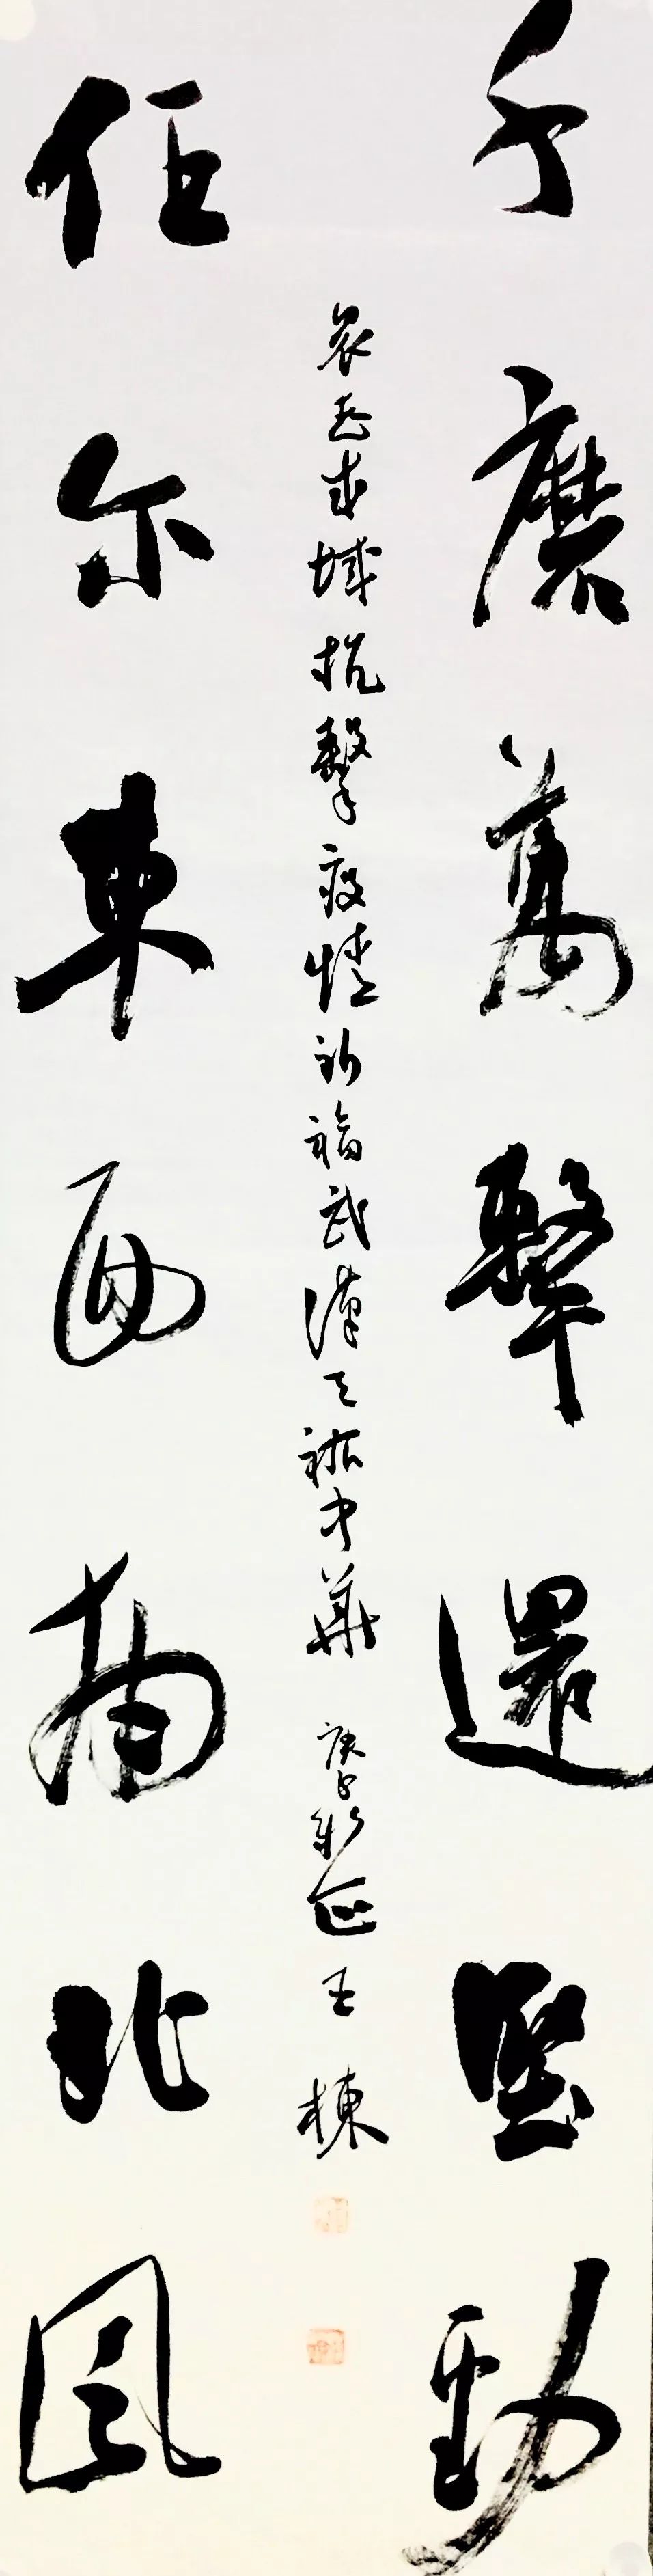 千磨萬擊還堅勁
任尔東西南北風
眾志成城抗擊疫情祈福武漢天祐中華 庚子新正王棟